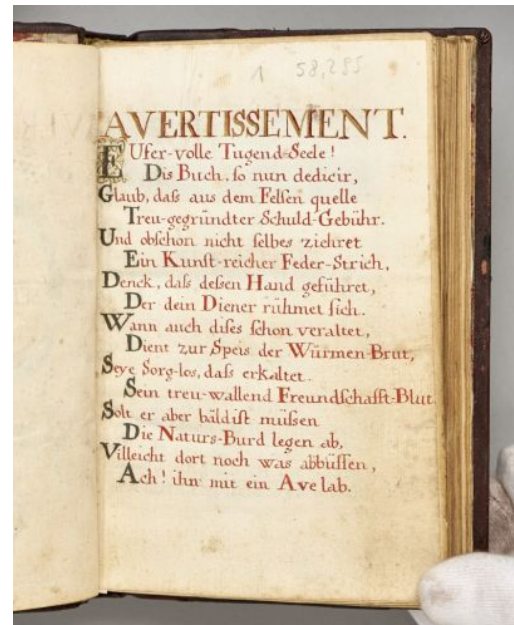 1 58,255
AVERTISSEMENT.
EUfer-volle Tugend-Seele!
Dis Buch, so nun dedicir,
Glaub, daß aus dem Felsen quelle
Treu-gegründter Schuld-Gebühr.
Und obschon nicht selbes ziehret
Ein Kunst-reicher Feder-Strich,
Denck, daß deßen Hand geführet,
Der dein Diener rühmet sich.
Wann auch dises schon veraltet,
Dient zur Speis der Würmen-Brut,
Seye Sorg-los, daß erkaltet
Sein treu-wallend Freundschafft-Blut
Solt er aber bäldist müßen
Die Naturs-Burd legen ab,
Villeicht dort noch was abbüssen,
Ach! ihn mit ein Ave lab.